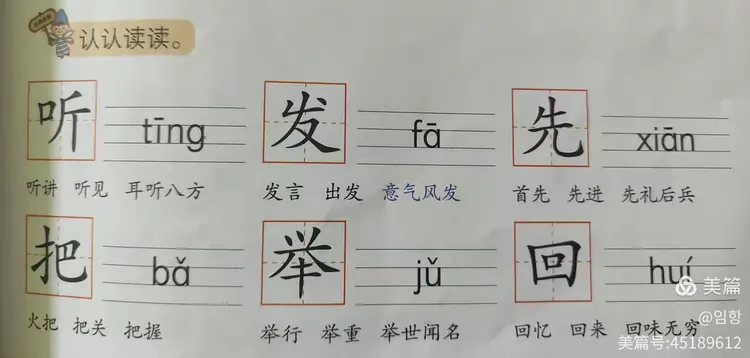 认认读读。
听 tīng 发 fā 先 xiān
听讲 听见 耳听八方 发言 出发 意气风发 首先 先进 先礼后兵
把 bǎ 举 jǔ 回 huí
火把 把关 把握 举行 举重 举世闻名 回忆 回来 回味无穷
美篇
@임항
美篇号:45189612